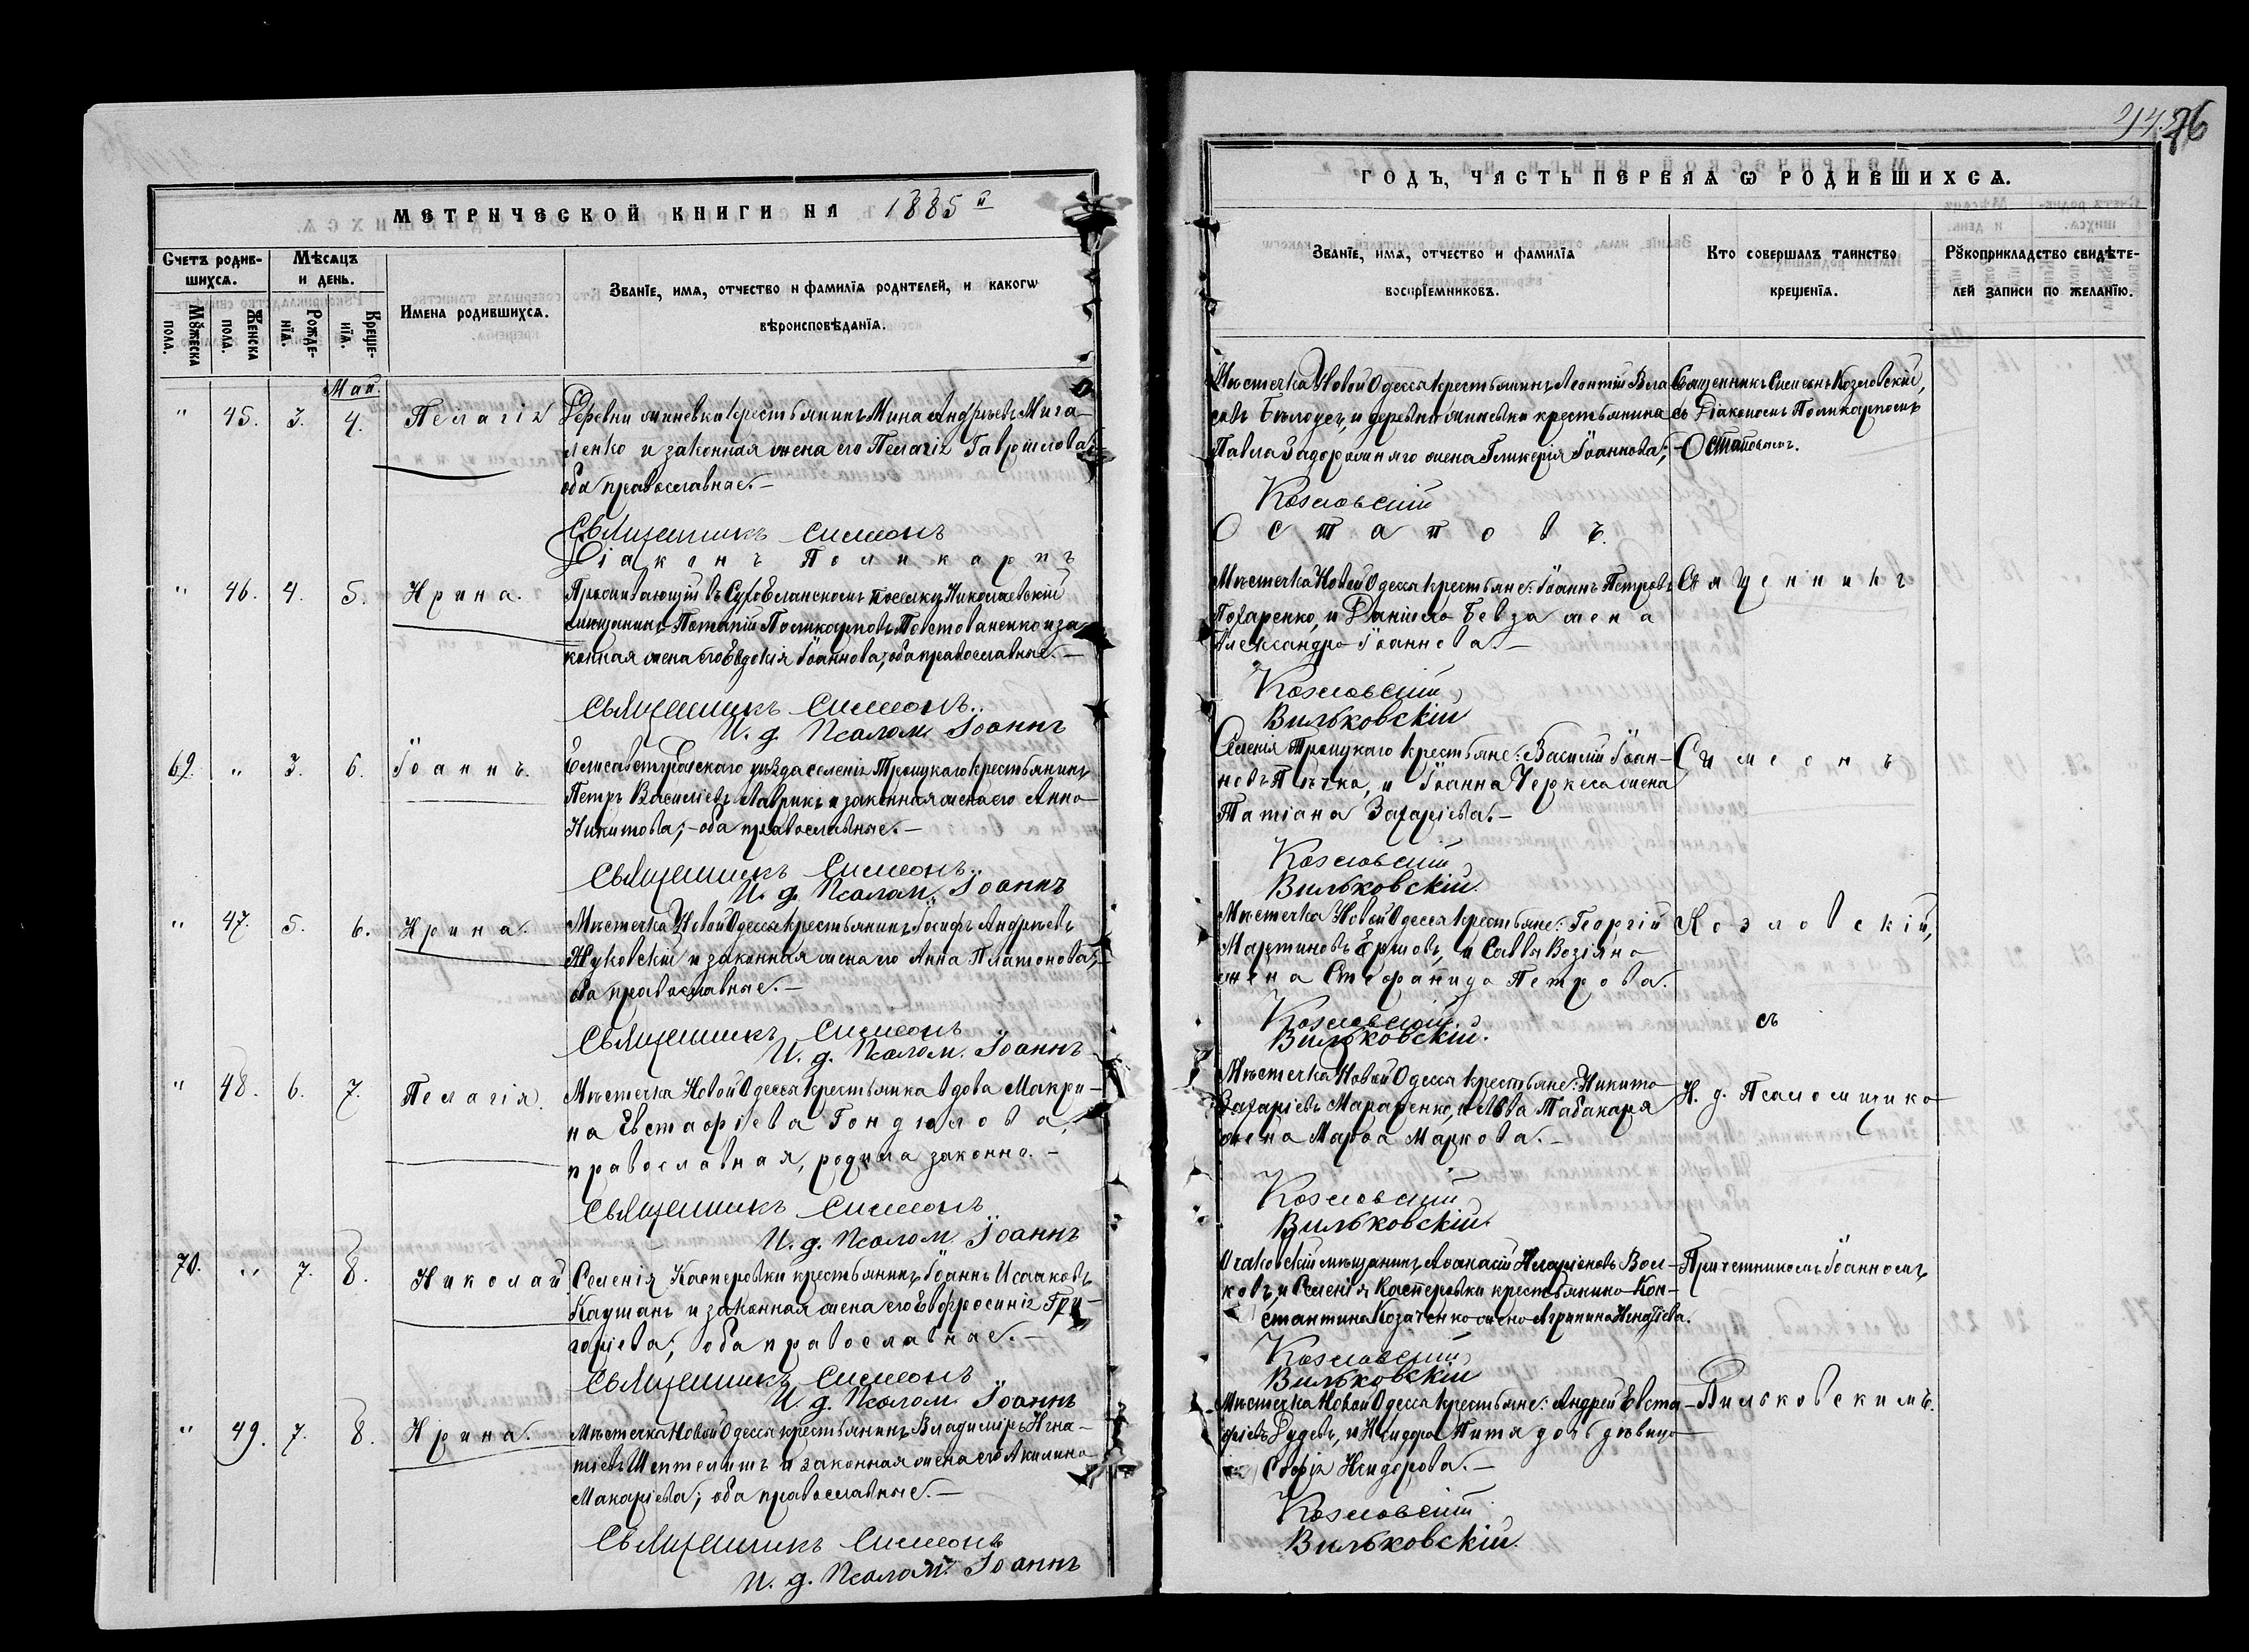 МЕТРИЧЕСКОЙ КНИГИ НА 1885 й
Счетъ родив-
шихся.
Мѣсяцъ
и день.
Имена родившихся.
Званіе, имя, отчество и фамилія родителей, и какогѡ
вѣроисповѣданія.
Мꙋжеска
пола.
Женска
пола.
Рожде-
нія.
Креще-
нія.
Май
" 45. 3. 4. Пелагія
Деревни Миневки крестьянинъ Мина Андреевъ Мига-
ленко и законная жена его Пелагія Гавріилова;
оба православные.—
Священникъ Симеонъ
Діаконъ Поликарпъ
" 46. 4. 5. Ирина.
Проживающій въ СухоЕланскомъ поселку Николаевскій
мѣщанинъ Потапій Поликарповъ Повстованенко и за
конная жена его Евдокія Іоаннова; оба православные.—
Священникъ Симеонъ
И. д. Псалом. Іоаннъ
69. " 3. 6. Іоаннъ.
Елисаветградскаго уѣзда селенія Троицкаго крестьянинъ
Петръ Василіевъ Лаврикъ и законная жена его Анна
Никитова; — оба православные.—
Священникъ Симеонъ
И. д. Псалом. Іоаннъ
" 47. 5. 6. Ирина.
Мѣстечка Новой Одессы крестьянинъ Іосифъ Андреевъ
Жуковскій и законная жена его Анна Платонова;
оба православные.—
Священникъ Симеонъ
И. д. Псалом. Іоаннъ
" 48. 6. 7. Пелагія.
Мѣстечка Новой Одессы крестьянка вдова Макри-
на Евстафіева Гондюлова,
православная, родила законно.—
Священникъ Симеонъ
И. д. Псалом. Іоаннъ
70. " 7. 8. Николай
Селенія Касперовки крестьянинъ Іоаннъ Исааковъ
Каушанъ и законная жена его Евфросинія Гри-
горіева; оба православные.—
Священникъ Симеонъ
И. д. Псалом Іоаннъ
" 49. 7. 8. Ирина.
Мѣстечка Новой Одессы крестьянинъ Владиміръ Игна-
тіевъ Шептелишъ и законная жена его Акилина
Макаріева; оба православные.—
Священникъ Симеонъ
И. д. Псалом. Іоаннъ
76
ГОДЪ, ЧАСТЬ ПЕРВАЯ Ѡ РОДИВШИХСЯ.
Званіе, имя, отчество и фамилія
воспріемниковъ.
Кто совершалъ таинство
крещенія.
Рꙋкоприкладство свидѣте-
лей записи по желанію.
Мѣстечка Новой Одессы крестьянинъ Леонтій Вла
совъ Бѣлоусъ, и деревни Миневки крестьянина
Павла Задорожняго жена Гликерія Іоаннова;
Козловскій
Остаповъ.
Мѣстечка Новой Одессы крестьяне: Іоаннъ Петровъ
Похаренко, и Даніила Бевза жена
Александра Іоаннова.—
Козловскій
Вильковскій
Селенія Троицкаго крестьяне: Василій Іоан-
новъ Пѣчка, и Іоанна Черкеса жена
Татіана Захаріева.—
Козловскій
Вильковскій.
Мѣстечка Новой Одессы крестьяне: Георгій
Мартиновъ Ершовъ, и Саввы Возіяна
жена Стефанида Петрова.
Козловскій
Вильковскій.
Мѣстечка Новой Одессы крестьяне: Никита
Захаріевъ Мараренко, и Льва Табакаря
жена Марфа Маркова.—
Козловскій
Вильковскій.
Очаковскій мѣщанинъ Афанасій Иларіоновъ Вол-
ковъ, и Селенія Касперовки крестьянина Кон-
стантина Козаченко жена Агрипина Игнатіева.
Козловскій
Вильковскій
Мѣстечка Новой Одессы крестьяне: Андрей Евста-
фіевъ Дудевъ, и Исидора Питя дочь дѣвица
Софія Исидорова.—
Козловскій
Вильковскій
Священникъ Симеонъ Козловскій,
съ Діакономъ Поликарпомъ
Остаповымъ.
Священникъ
Симеонъ
Козловскій,
съ
И. д. Псаломщика
Причетникомъ Іоанномъ
Вильковскимъ.